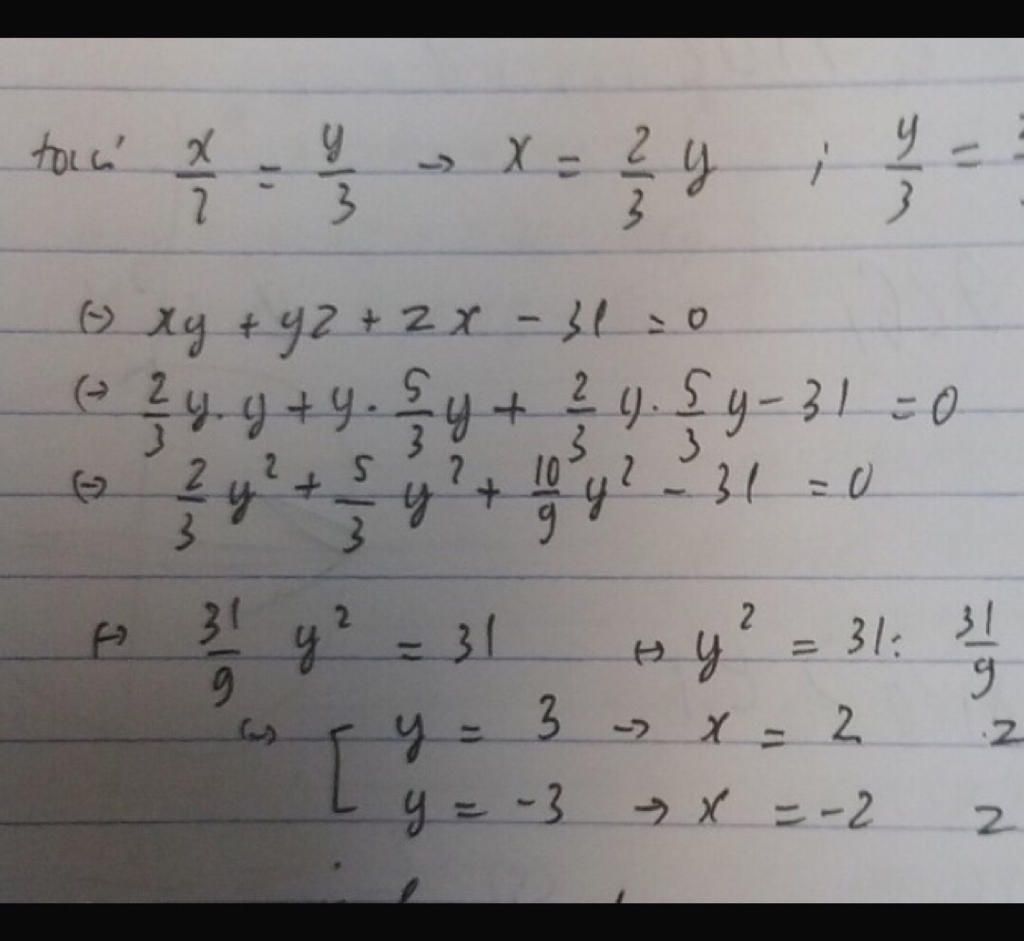 ta có x/2 = y/3 → x = 2/3 y ; y/3 =
(→ xy + yz + zx - 31 = 0
(→ 2/3 y.y + y. 5/3 y + 2/3 y. 5/3 y - 31 = 0
(→ 2/3 y² + 5/3 y² + 10/9 y² - 31 = 0
↔ 31/9 y² = 31 ↔ y² = 31: 31/9
↔ [ y = 3 → x = 2 z
y = -3 → x = -2 z